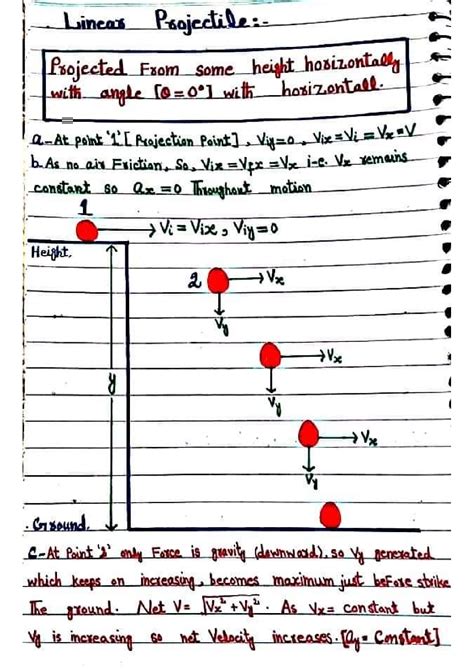 Linear Projectile:-
Projected From some height horizontally
with angle [θ=0°] with horizontall.
a-At point '1' [Projection Point], Viy=0, Vix=Vi=Vx=V
b.As no air Friction, So, Vix=Vfx=Vx i-e. Vx remains
constant so ax=0 Throughout motion
1
Vi=Vix, Viy=0
Height.
2
Vx
Vy
Vx
y
Vy
Vx
Vy
Ground.
C-At Point '2' only Force is gravity (downward), so Vy generated
which keeps on increasing, becomes maximum just beFore strike
The ground. Net V= √Vx²+Vy². As Vx= constant but
Vy is increasing so net Velocity increases. [ay= Constant]